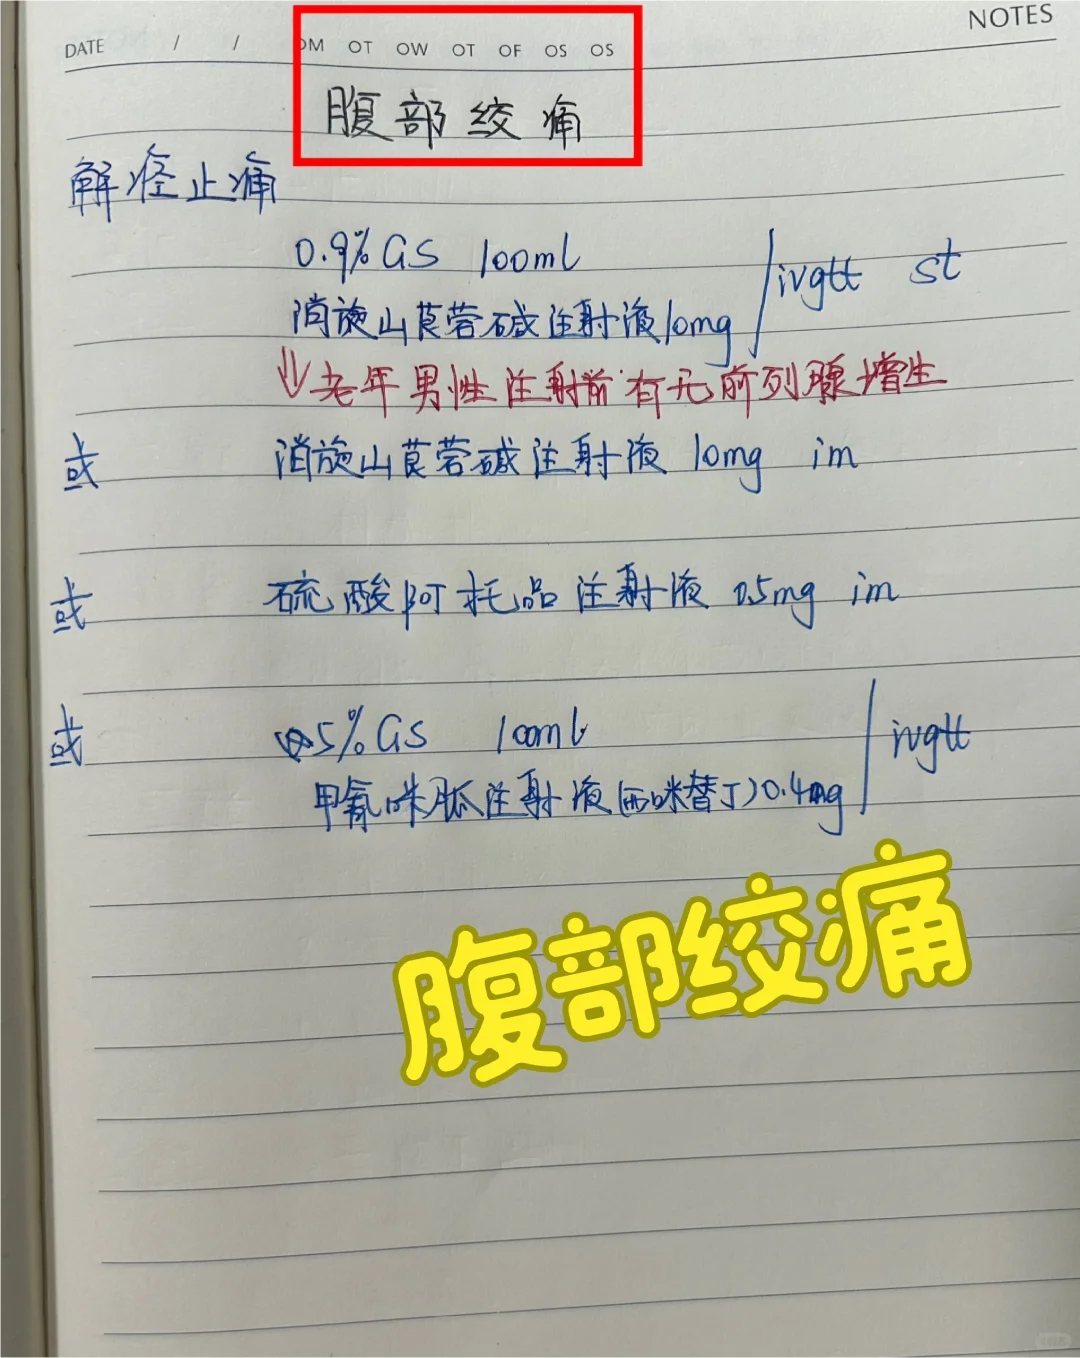 NOTES
DATE / / OM OT OW OT OF OS OS
腹部绞痛
解痉止痛
0.9% GS 100ml
消旋山莨菪碱注射液 10mg / ivgtt st
↓老年男性注射前有无前列腺增生
或 消旋山莨菪碱注射液 10mg im
或 硫酸阿托品注射液 0.5mg im
或 5% GS 100ml
甲氰咪胍注射液(西咪替丁)0.4mg / ivgtt
腹部绞痛